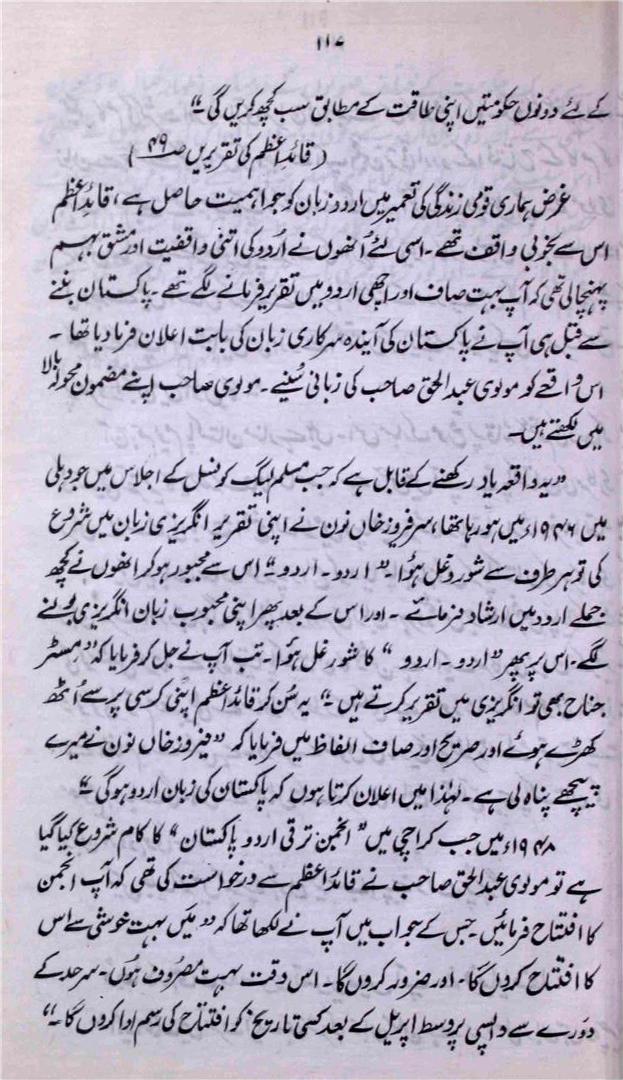 ۱۱۷
کے لئے دونوں حکومتیں اپنی طاقت کے مطابق سب کچھ کریں گی۔"
(قائد اعظم کی تقریریں صـ ۴۹)
غرض ہماری قومی زندگی کی تعمیر میں اردو زبان کو جو اہمیت حاصل ہے، قائد اعظم
اس سے بخوبی واقف تھے۔ اسی لئے اُنھوں نے اُردو کی اتنی واقفیت اور مشق بہم
پہنچالی تھی کہ آپ بہت صاف اور اچھی اردو میں تقریر فرمانے لگے تھے۔ پاکستان بننے
سے قبل ہی آپ نے پاکستان کی آیندہ سرکاری زبان کی بابت اعلان فرما دیا تھا۔
اس واقعے کو مولوی عبدالحق صاحب کی زبانی سُنیے۔ مولوی صاحب اپنے مضمون محولہ بالا
میں لکھتے ہیں۔
"یہ واقعہ یاد رکھنے کے قابل ہے کہ جب مسلم لیگ کونسل کے اجلاس میں جو دہلی
میں ۱۹۴۶ء میں ہو رہا تھا، سر فیروز خاں نون نے اپنی تقریر انگریزی زبان میں شروع
کی تو ہر طرف سے شور و غل ہؤا۔ "اردو۔ اردو۔" اس سے مجبور ہو کر انھوں نے کچھ
جملے اردو میں ارشاد فرمائے۔ اور اس کے بعد پھر اپنی محبوب زبان انگریزی بولنے
لگے۔ اس پر پھر "اردو۔ اردو" کا شور غل ہؤا۔ تب آپ نے جل کر فرمایا کہ "مسٹر
جناح بھی تو انگریزی میں تقریر کرتے ہیں۔" یہ سُن کر قائد اعظم اپنی کرسی پر سے اُٹھ
کھڑے ہوئے اور صریح اور صاف الفاظ میں فرمایا کہ "فیروز خاں نون نے میرے
پیچھے پناہ لی ہے۔ لہٰذا میں اعلان کرتا ہوں کہ پاکستان کی زبان اردو ہوگی۔"
۱۹۴۸ء میں جب کراچی میں "انجمن ترقی اردو پاکستان" کا کام شروع کیا گیا
ہے تو مولوی عبدالحق صاحب نے قائد اعظم سے درخواست کی تھی کہ آپ انجمن
کا افتتاح فرمائیں۔ جس کے جواب میں آپ نے لکھا تھا کہ "مَیں بہت خوشی سے اس
کا افتتاح کروں گا۔ اور ضرور کروں گا۔ اس وقت بہت مصروف ہوں۔ سرحد کے
دَورے سے واپسی پر وسط اپریل کے بعد کسی تاریخ کو افتتاح کی رسم ادا کروں گا۔"